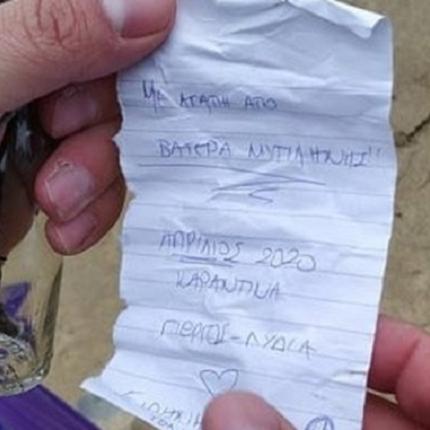 ΜΕ ΑΓΑΠΗ ΑΠΟ
ΒΑΤΕΡΑ ΜΥΤΙΛΗΝΗΣ!!
ΑΠΡΙΛΙΟΣ 2020
ΚΑΡΑΝΤΙΝΑ
ΓΙΩΡΓΟΣ-ΛΥΔΙΑ